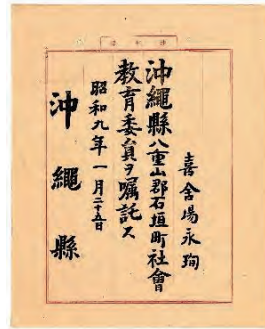 喜舍場永珣
沖繩縣八重山郡石垣町社會
教育委員ヲ囑託ス
昭和九年一月二十五日
沖繩縣